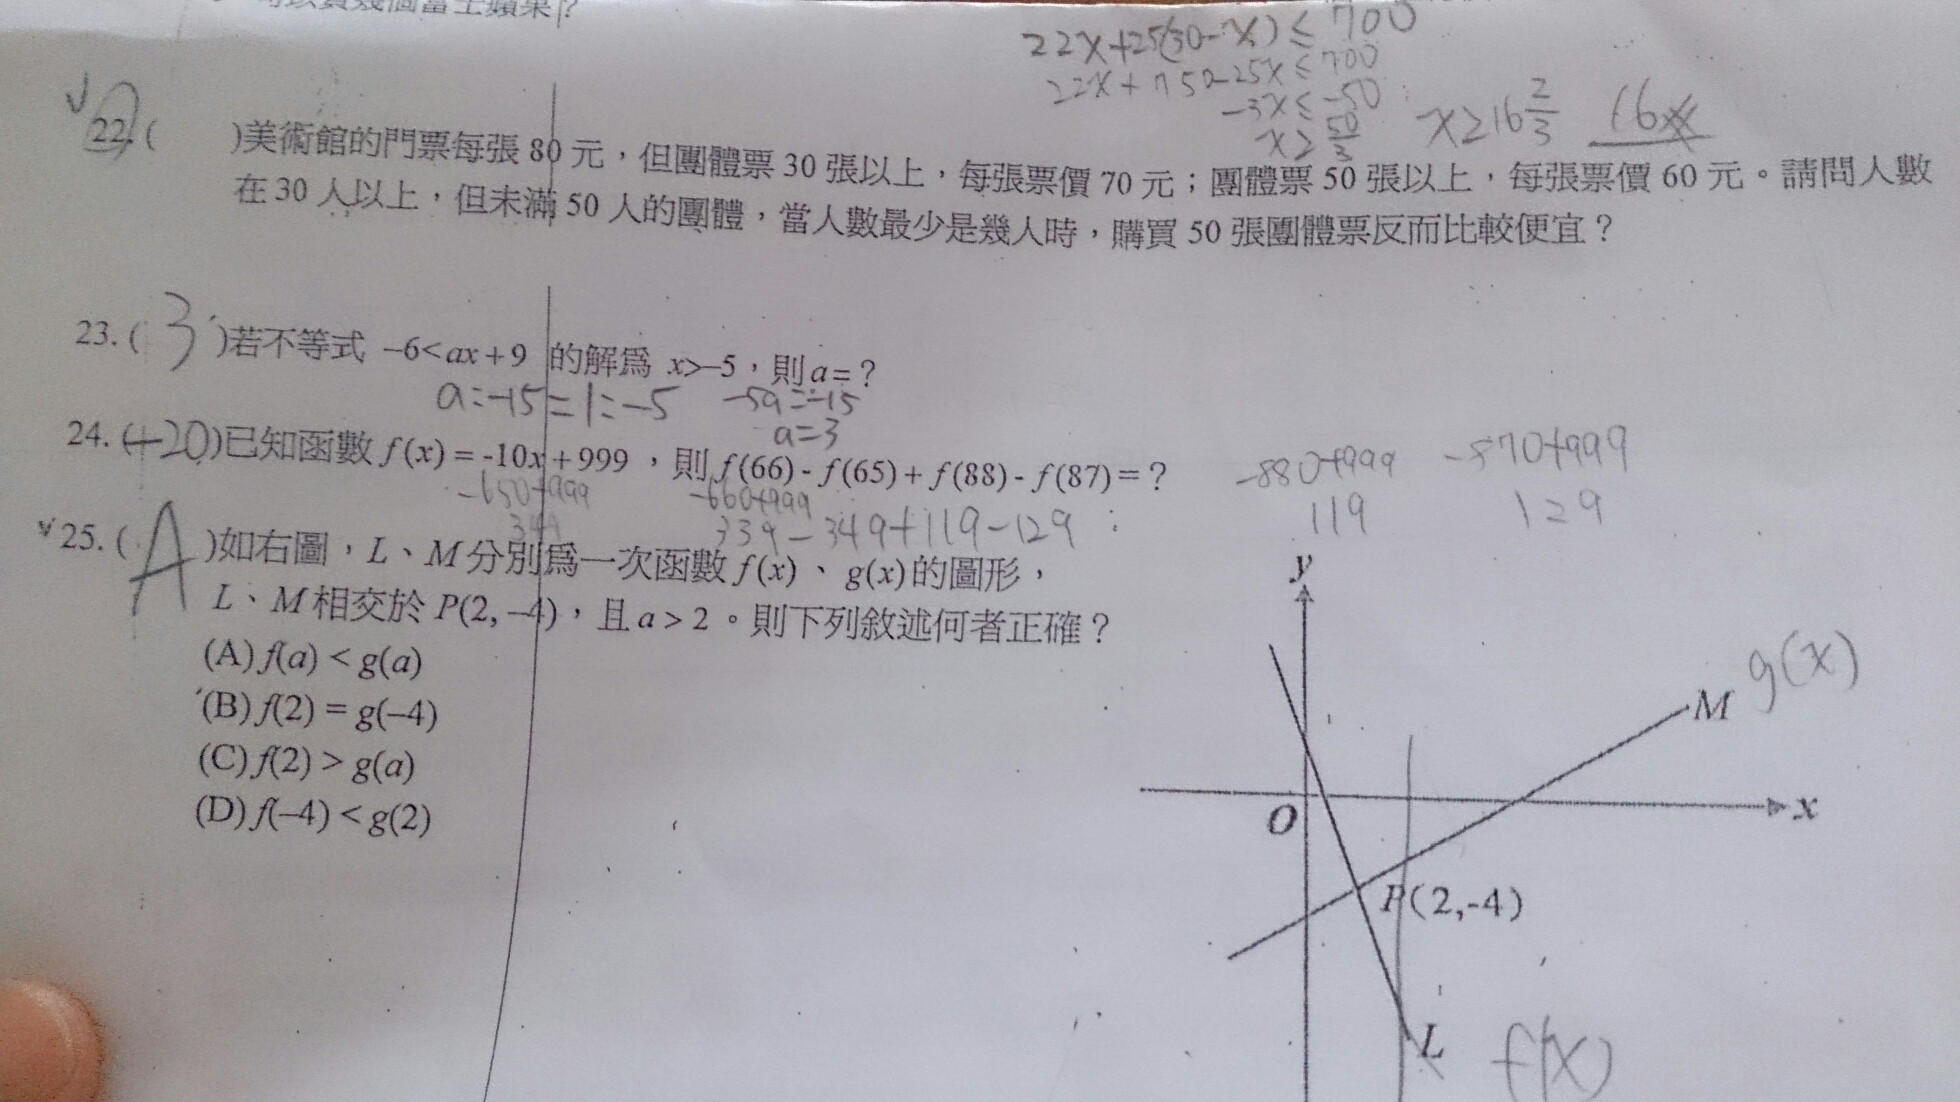 22x+25(30-x)≤700
22x+750-25x≤700
-3x≤-50
x≥50/3
x≥16 2/3
22.( )美術館的門票每張 80 元，但團體票 30 張以上，每張票價 70 元；團體票 50 張以上，每張票價 60 元。請問人數
在 30 人以上，但未滿 50 人的團體，當人數最少是幾人時，購買 50 張團體票反而比較便宜？
23.( 3 )若不等式 –6<ax+9 的解爲 x>–5，則 a=？
a=-15=1=-5 -5a=-15
a=3
24.(-20)已知函數 f(x) = -10x+999 ，則 f(66) - f(65) + f(88) - f(87) = ?
-880+999 -870+999
-650+999 -660+999 119 129
349 339-349+119-129
25.( A )如右圖，L、M 分別爲一次函數 f(x)、g(x) 的圖形，
L、M 相交於 P(2, –4)，且 a > 2。則下列敘述何者正確？
(A) f(a) < g(a)
(B) f(2) = g(–4)
(C) f(2) > g(a)
(D) f(–4) < g(2)
y
g(x)
M
O
x
P(2,-4)
L
f(x)